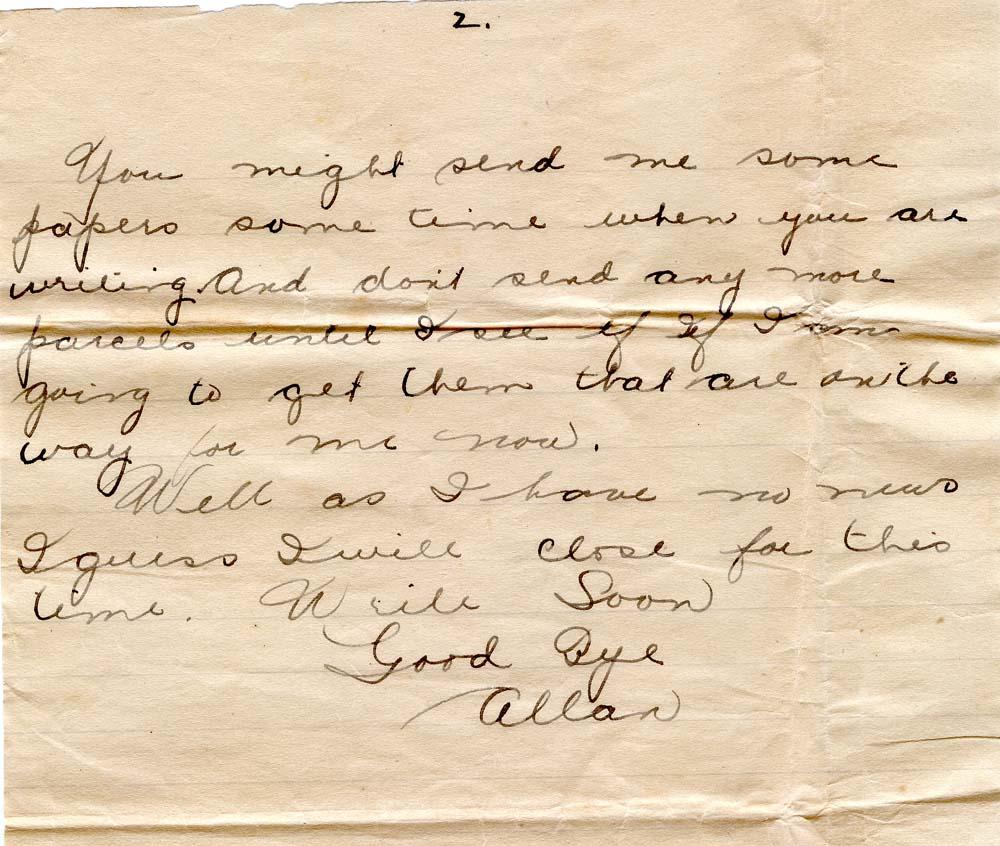 2.
You might send me some
papers some time when you are
writing. And don't send any more
parcels until I see if if I am
going to get them that are on the
way for me now.
Well as I have no news
I guess I will close for this
time. Write Soon
Good Bye
Allan